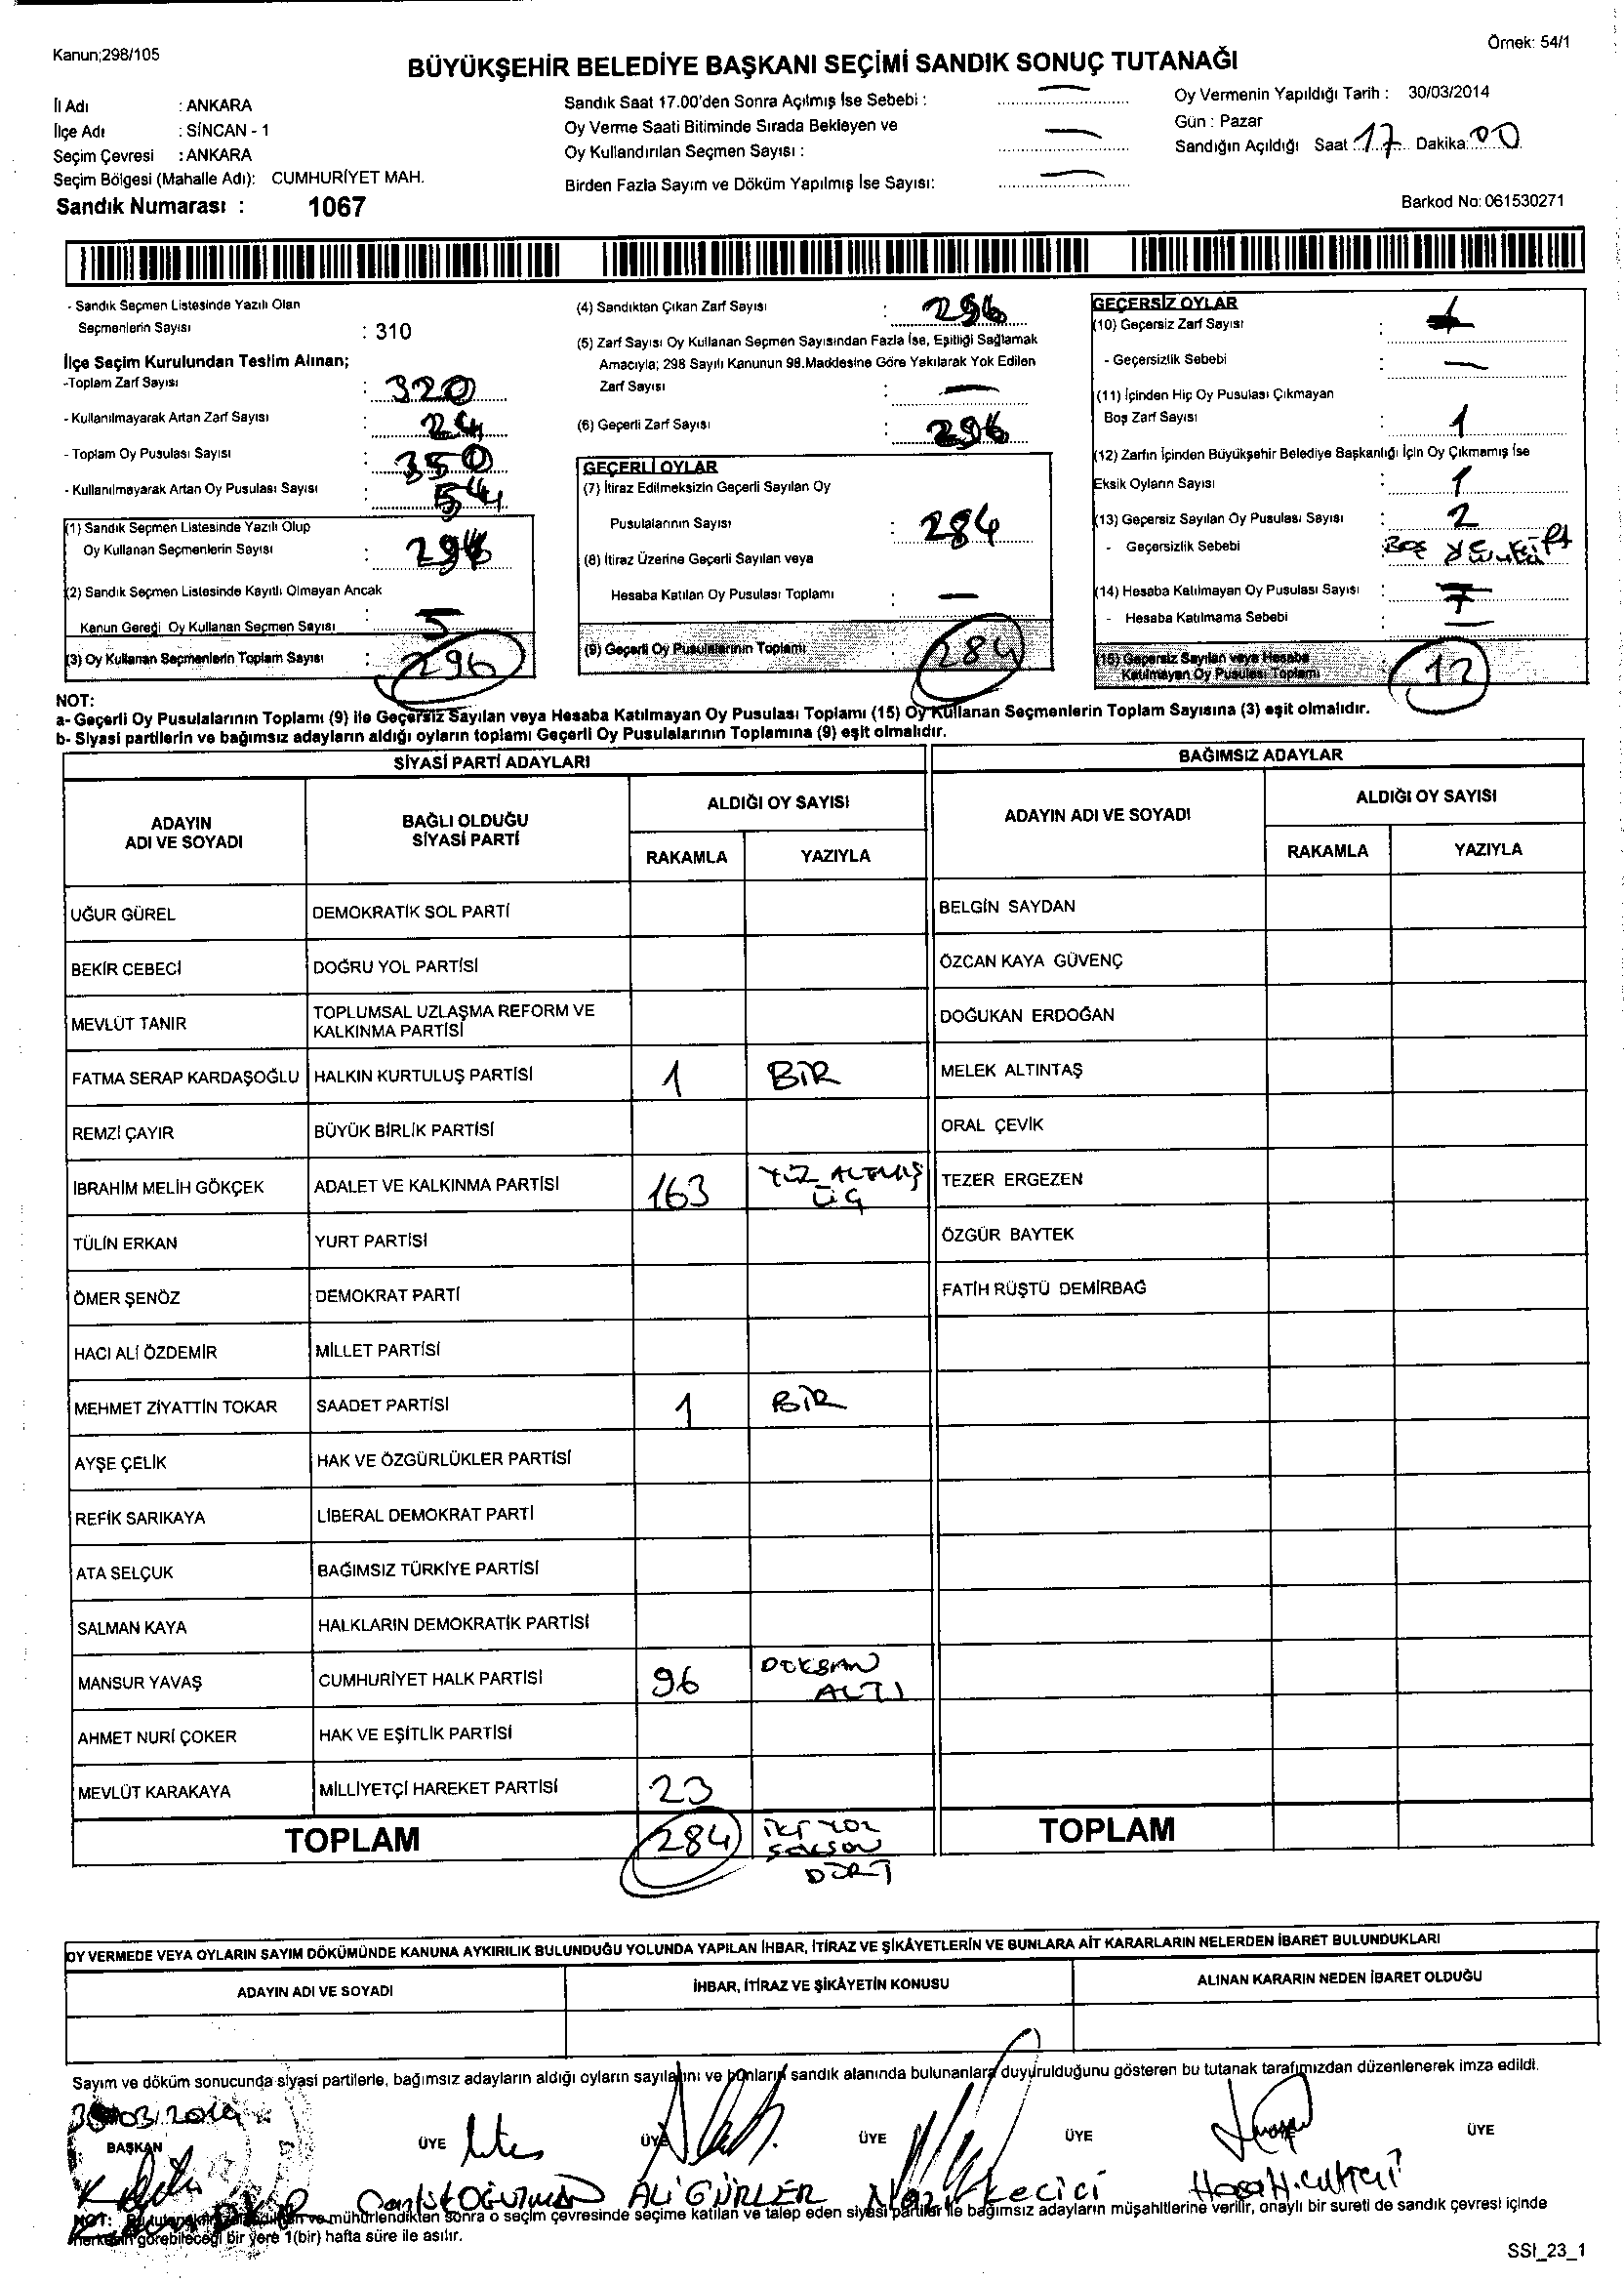 Kanun;298/105
Örnek: 54/1
BÜYÜKŞEHİR BELEDİYE BAŞKANI SEÇİMİ SANDIK SONUÇ TUTANAĞI
İl Adı : ANKARA
İlçe Adı : SİNCAN - 1
Seçim Çevresi : ANKARA
Seçim Bölgesi (Mahalle Adı): CUMHURİYET MAH.
Sandık Numarası : 1067
Sandık Saat 17.00'den Sonra Açılmış İse Sebebi : —
Oy Verme Saati Bitiminde Sırada Bekleyen ve
Oy Kullandırılan Seçmen Sayısı : —
Birden Fazla Sayım ve Döküm Yapılmış İse Sayısı: —
Oy Vermenin Yapıldığı Tarih : 30/03/2014
Gün : Pazar
Sandığın Açıldığı Saat 17 Dakika: 00
Barkod No: 061530271
- Sandık Seçmen Listesinde Yazılı Olan
Seçmenlerin Sayısı : 310
İlçe Seçim Kurulundan Teslim Alınan;
-Toplam Zarf Sayısı : 320
- Kullanılmayarak Artan Zarf Sayısı : 24
- Toplam Oy Pusulası Sayısı : 350
- Kullanılmayarak Artan Oy Pusulası Sayısı : 54
(1) Sandık Seçmen Listesinde Yazılı Olup
Oy Kullanan Seçmenlerin Sayısı :
(2) Sandık Seçmen Listesinde Kayıtlı Olmayan Ancak
Kanun Gereği Oy Kullanan Seçmen Sayısı :
(3) Oy Kullanan Seçmenlerin Toplam Sayısı : 296
(4) Sandıktan Çıkan Zarf Sayısı : 296
(5) Zarf Sayısı Oy Kullanan Seçmen Sayısından Fazla İse, Eşitliği Sağlamak
Amacıyla; 298 Sayılı Kanunun 98.Maddesine Göre Yakılarak Yok Edilen
Zarf Sayısı : —
(6) Geçerli Zarf Sayısı : 296
GEÇERLİ OYLAR
(7) İtiraz Edilmeksizin Geçerli Sayılan Oy
Pusulalarının Sayısı : 284
(8) İtiraz Üzerine Geçerli Sayılan veya
Hesaba Katılan Oy Pusulası Toplamı : —
(9) Geçerli Oy Pusulalarının Toplamı : 284
GEÇERSİZ OYLAR
(10) Geçersiz Zarf Sayısı :
- Geçersizlik Sebebi : —
(11) İçinden Hiç Oy Pusulası Çıkmayan
Boş Zarf Sayısı : 1
(12) Zarfın İçinden Büyükşehir Belediye Başkanlığı İçin Oy Çıkmamış İse
Eksik Oyların Sayısı : 1
(13) Geçersiz Sayılan Oy Pusulası Sayısı : 2
- Geçersizlik Sebebi : BOŞ
(14) Hesaba Katılmayan Oy Pusulası Sayısı :
- Hesaba Katılmama Sebebi : —
(15) Geçersiz Sayılan veya Hesaba
Katılmayan Oy Pusulası Toplamı : 12
NOT:
a- Geçerli Oy Pusulalarının Toplamı (9) ile Geçersiz Sayılan veya Hesaba Katılmayan Oy Pusulası Toplamı (15) Oy Kullanan Seçmenlerin Toplam Sayısına (3) eşit olmalıdır.
b- Siyasi partilerin ve bağımsız adayların aldığı oyların toplamı Geçerli Oy Pusulalarının Toplamına (9) eşit olmalıdır.
SİYASİ PARTİ ADAYLARI
ADAYIN
ADI VE SOYADI
BAĞLI OLDUĞU
SİYASİ PARTİ
ALDIĞI OY SAYISI
RAKAMLA YAZIYLA
UĞUR GÜREL DEMOKRATİK SOL PARTİ
BEKİR CEBECİ DOĞRU YOL PARTİSİ
MEVLÜT TANIR TOPLUMSAL UZLAŞMA REFORM VE
KALKINMA PARTİSİ
FATMA SERAP KARDAŞOĞLU HALKIN KURTULUŞ PARTİSİ 1 BİR
REMZİ ÇAYIR BÜYÜK BİRLİK PARTİSİ
İBRAHİM MELİH GÖKÇEK ADALET VE KALKINMA PARTİSİ 163 YÜZ ALTMIŞ
ÜÇ
TÜLİN ERKAN YURT PARTİSİ
ÖMER ŞENÖZ DEMOKRAT PARTİ
HACI ALİ ÖZDEMİR MİLLET PARTİSİ
MEHMET ZİYATTİN TOKAR SAADET PARTİSİ 1 BİR
AYŞE ÇELİK HAK VE ÖZGÜRLÜKLER PARTİSİ
REFİK SARIKAYA LİBERAL DEMOKRAT PARTİ
ATA SELÇUK BAĞIMSIZ TÜRKİYE PARTİSİ
SALMAN KAYA HALKLARIN DEMOKRATİK PARTİSİ
MANSUR YAVAŞ CUMHURİYET HALK PARTİSİ 96 DOKSAN
ALTI
AHMET NURİ ÇOKER HAK VE EŞİTLİK PARTİSİ
MEVLÜT KARAKAYA MİLLİYETÇİ HAREKET PARTİSİ 23
TOPLAM 284 İKİ YÜZ
SEKSEN
DÖRT
BAĞIMSIZ ADAYLAR
ADAYIN ADI VE SOYADI
ALDIĞI OY SAYISI
RAKAMLA YAZIYLA
BELGİN SAYDAN
ÖZCAN KAYA GÜVENÇ
DOĞUKAN ERDOĞAN
MELEK ALTINTAŞ
ORAL ÇEVİK
TEZER ERGEZEN
ÖZGÜR BAYTEK
FATİH RÜŞTÜ DEMİRBAĞ
TOPLAM
OY VERMEDE VEYA OYLARIN SAYIM DÖKÜMÜNDE KANUNA AYKIRILIK BULUNDUĞU YOLUNDA YAPILAN İHBAR, İTİRAZ VE ŞİKÂYETLERİN VE BUNLARA AİT KARARLARIN NELERDEN İBARET BULUNDUKLARI
ADAYIN ADI VE SOYADI İHBAR, İTİRAZ VE ŞİKÂYETİN KONUSU ALINAN KARARIN NEDEN İBARET OLDUĞU
Sayım ve döküm sonucunda siyasi partilerle, bağımsız adayların aldığı oyların sayılarını ve bunların sandık alanında bulunanlara duyurulduğunu gösteren bu tutanak tarafımızdan düzenlenerek imza edildi.
30/03/2014
BAŞKAN ÜYE ÜYE ÜYE ÜYE ÜYE
ALİ GÜRLER
NOT: Bu tutanak ve mühürlendikten sonra o seçim çevresinde seçime katılan ve talep eden siyasi partiler ile bağımsız adayların müşahitlerine verilir, onaylı bir sureti de sandık çevresi içinde
herkesin görebileceği bir yere 1(bir) hafta süre ile asılır.
SSİ_23_1